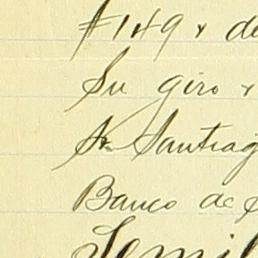 $149 & de
Su giro &
Sr Santiag
Banco de S
Semil